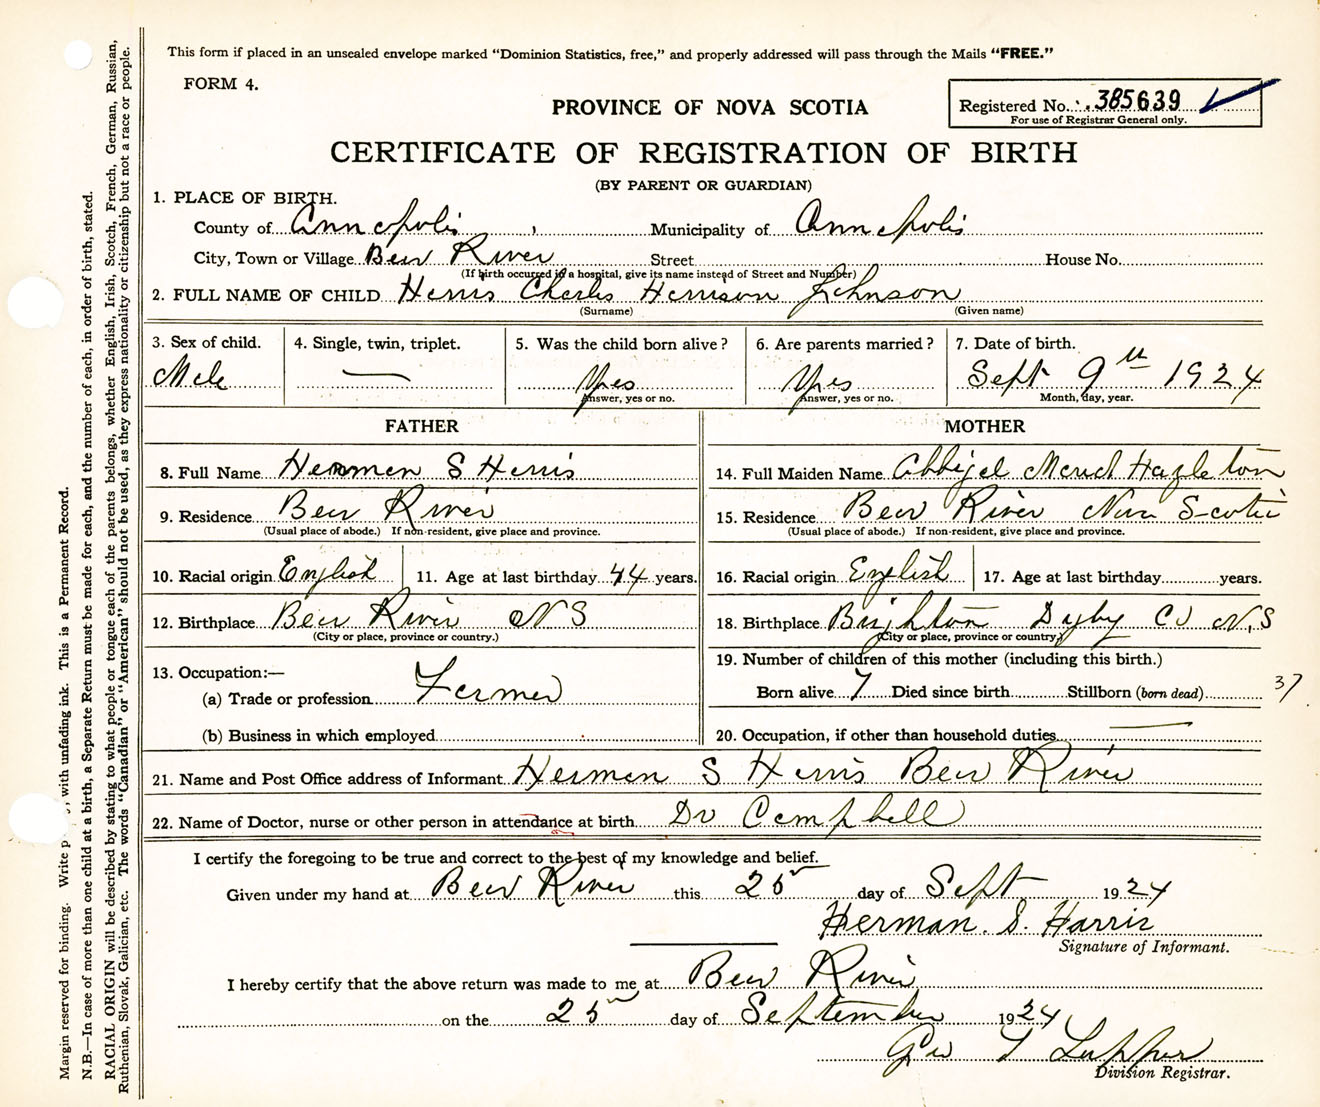 This form if placed in an unsealed envelope marked "Dominion Statistics, free," and properly addressed will pass through the Mails "FREE."
FORM 4.
PROVINCE OF NOVA SCOTIA
Registered No. 385639
For use of Registrar General only.
CERTIFICATE OF REGISTRATION OF BIRTH
(BY PARENT OR GUARDIAN)
1. PLACE OF BIRTH.
County of Annapolis Municipality of Annapolis
City, Town or Village Bear River Street House No.
(If birth occurred in a hospital, give its name instead of Street and Number)
2. FULL NAME OF CHILD Harris Charles Harrison Johnson
(Surname) (Given name)
3. Sex of child. 4. Single, twin, triplet. 5. Was the child born alive? 6. Are parents married? 7. Date of birth.
Male — Yes Yes Sept 9th 1924
Answer, yes or no. Answer, yes or no. Month, day, year.
FATHER MOTHER
8. Full Name Herman S Harris 14. Full Maiden Name Abbigal Maud Hazleton
9. Residence Bear River 15. Residence Bear River Nova Scotia
(Usual place of abode.) If non-resident, give place and province. (Usual place of abode.) If non-resident, give place and province.
10. Racial origin English 11. Age at last birthday 44 years. 16. Racial origin English 17. Age at last birthday years.
12. Birthplace Bear River N S 18. Birthplace Brighton Digby Co N.S
(City or place, province or country.) (City or place, province or country.)
13. Occupation:— 19. Number of children of this mother (including this birth.)
(a) Trade or profession Farmer Born alive 7 Died since birth Stillborn (born dead) 37
(b) Business in which employed 20. Occupation, if other than household duties —
21. Name and Post Office address of Informant Herman S Harris Bear River
22. Name of Doctor, nurse or other person in attendance at birth Dr Campbell
I certify the foregoing to be true and correct to the best of my knowledge and belief.
Given under my hand at Bear River this 25 day of Sept 1924
Herman. S. Harris
Signature of Informant.
I hereby certify that the above return was made to me at Bear River
on the 25 day of September 1924
Geo T
Division Registrar.
Margin reserved for binding. Write with unfading ink. This is a Permanent Record.
N.B.—In case of more than one child at a birth, a Separate Return must be made for each, and the number of each, in order of birth, stated.
RACIAL ORIGIN will be described by stating to what people or tongue each of the parents belongs, whether English, Irish, Scotch, French, German, Russian,
Ruthenian, Slovak, Galician, etc. The words "Canadian" or "American" should not be used, as they express nationality or citizenship but not a race or people.